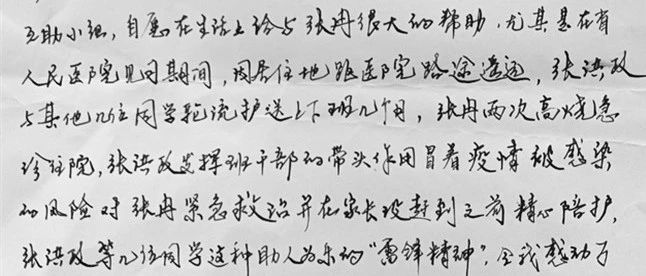 互助小组，自愿在生活上给与张冉很大的帮助，尤其是在省
人民医院见习期间，因居住地距医院路途遥远，张洪政
与其他几位同学轮流护送上下班几个月，张冉两次高烧急
诊住院，张洪政发挥班干部的带头作用冒着疫情被感染
的风险对张冉紧急救治并在家长没赶到之前精心陪护，
张洪政等几位同学这种助人为乐的“雷锋精神”，令我感动了